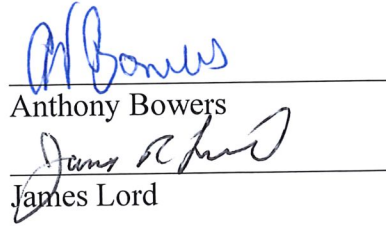 A Bowers
Anthony Bowers
James R Lord
James Lord